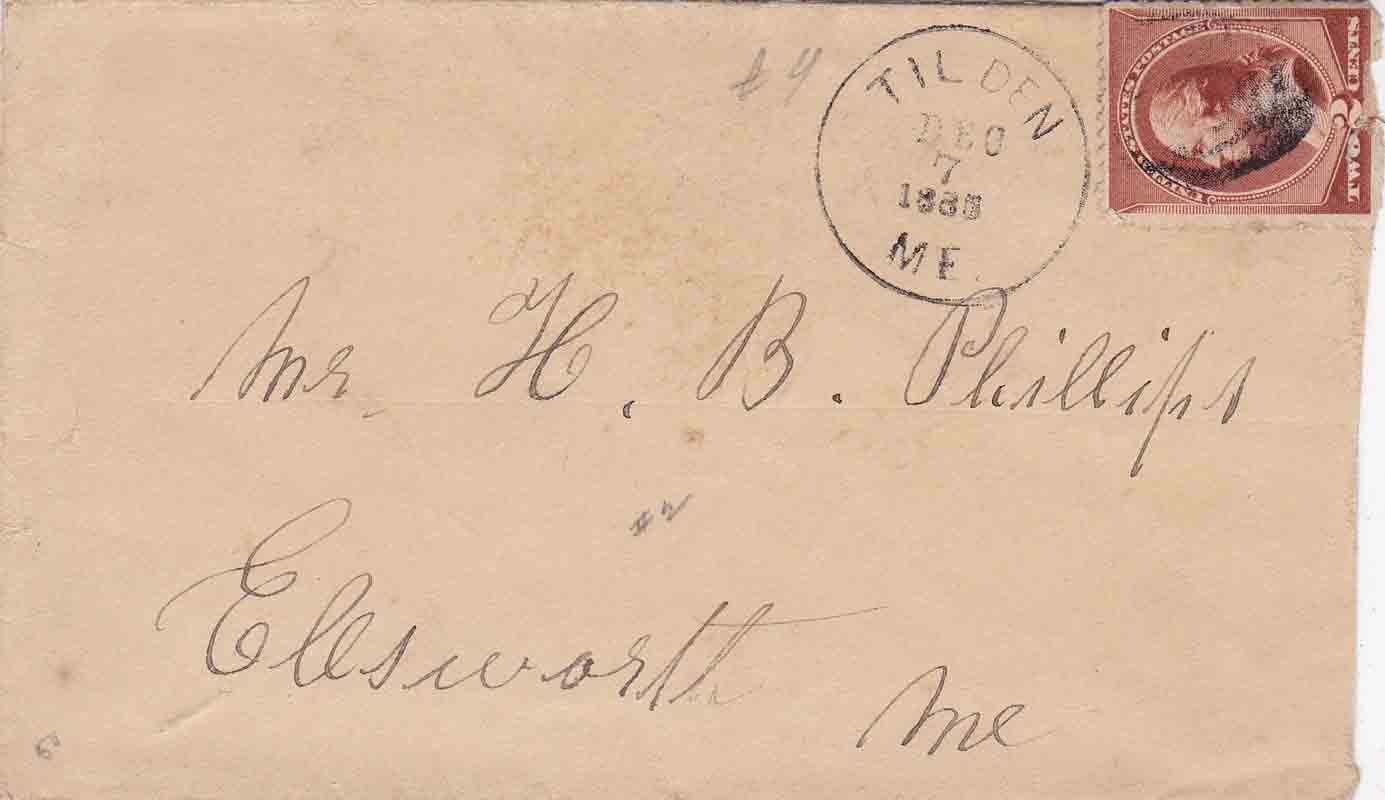 #4
TILDEN
DEC
7
1885
ME.
UNITED STATES POSTAGE
TWO 2 CENTS
Mr. H. B. Phillips
#2
Ellsworth
Me